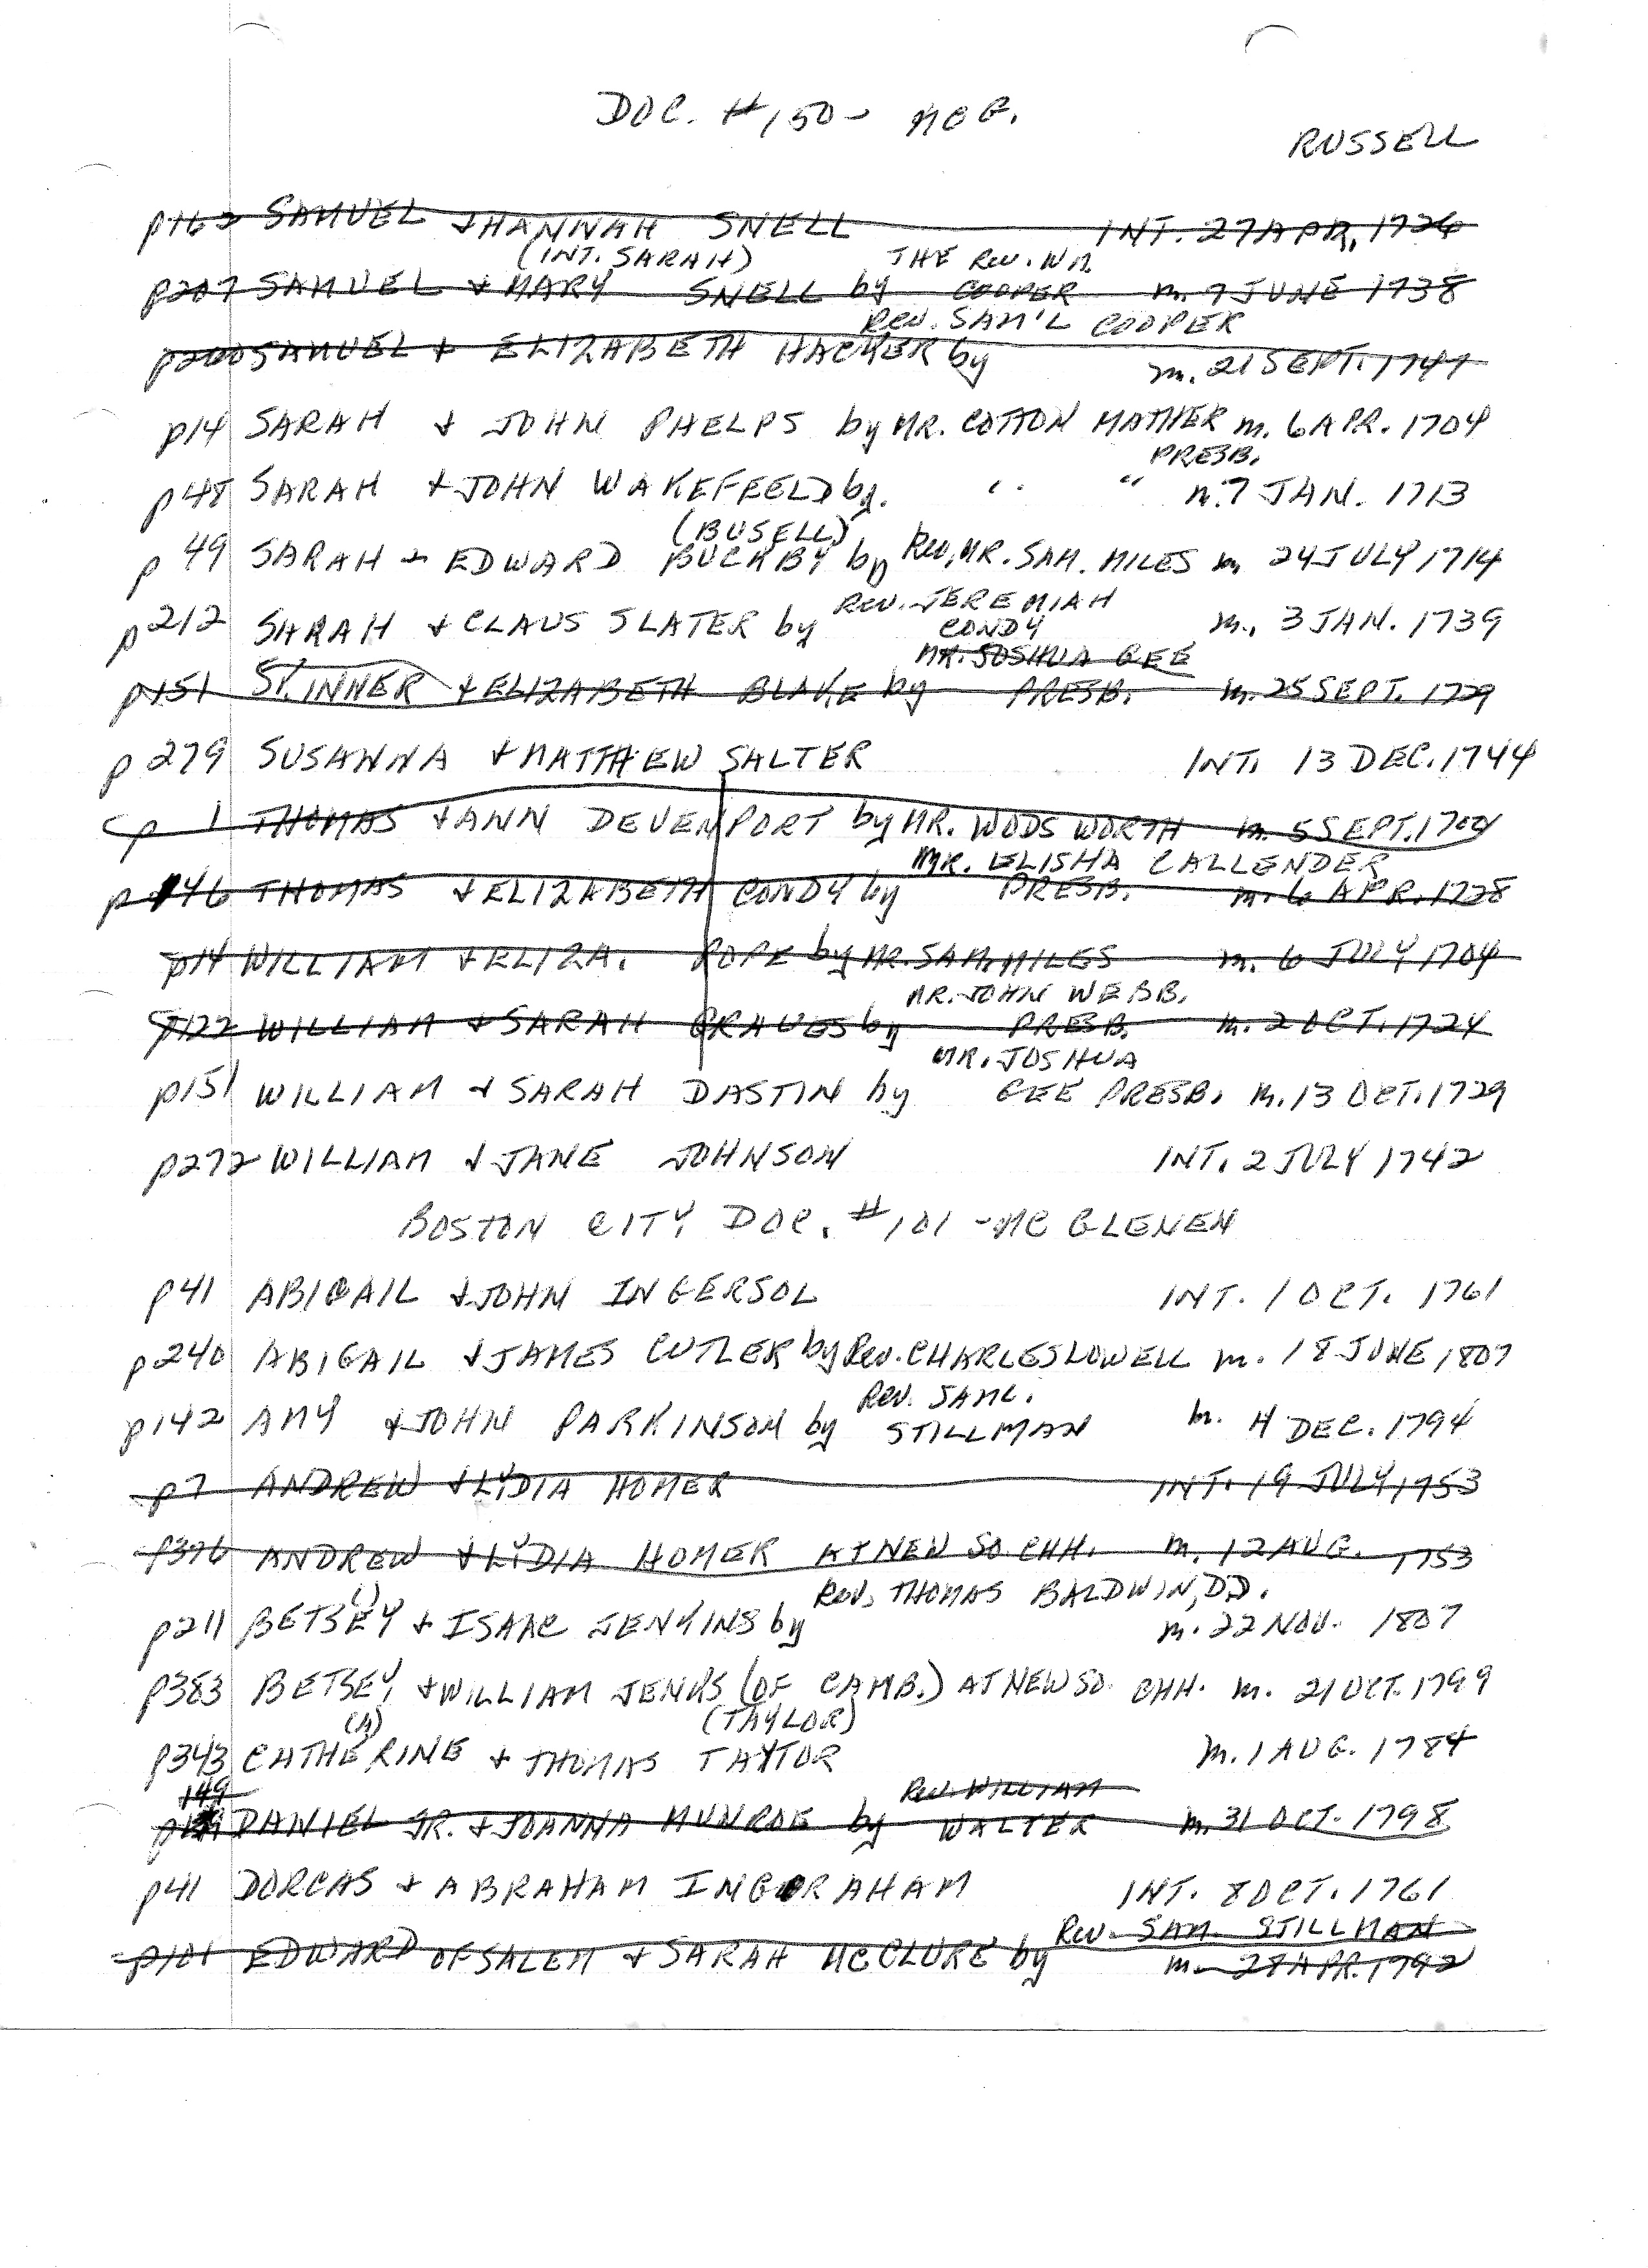 DOC. #150- MCG.
RUSSELL
p162 SAMUEL & HANNAH SNELL INT. 27 APR, 1726
(INT. SARAH) THE Rev. WM.
p207 SAMUEL & MARY SNELL by COOPER m. 9 JUNE 1738
Rev. SAM'L COOPER
SAMUEL & ELIZABETH HACKER by m. 21 SEPT. 1747
p14 SARAH & JOHN PHELPS by MR. COTTON MATHER m. 6 APR. 1704
PRESB.
p48 SARAH & JOHN WAKEFEELD by. " " m. 7 JAN. 1713
(BUSELL)
p 49 SARAH & EDWARD BUCKBY by Rev. MR. SAM. MILES m 24 JULY 1714
Rev. JEREMIAH
p212 SARAH & CLAUS SLATER by CONDY m., 3 JAN. 1739
MR. JOSHUA GEE
p151 SKINNER & ELIZABETH BLAKE by PRESB. m. 25 SEPT. 1729
p 279 SUSANNA & MATTHEW SALTER INT. 13 DEC. 1744
p 1 THOMAS & ANN DEVENPORT by MR. WODSWORTH m. 5 SEPT. 1701
MR. ELISHA CALLENDER
p 146 THOMAS & ELIZABETH CONDY by PRESB. m. 6 APR. 1728
p14 WILLIAM & ELIZA. POPE by MR. SAM. MILES m. 6 JULY 1704
MR. JOHN WEBB.
p122 WILLIAM & SARAH GRAVES by PRESB. m. 2 OCT. 1724
MR. JOSHUA
p151 WILLIAM & SARAH DASTIN by GEE PRESB. m. 13 OCT. 1729
p272 WILLIAM & JANE JOHNSON INT. 2 JULY 1742
BOSTON CITY DOC. #101 - MC GLENEN
p41 ABIGAIL & JOHN INGERSOL INT. 1 OCT. 1761
p240 ABIGAIL & JAMES CUTLER by Rev. CHARLES LOWELL m. 18 JUNE 1807
Rev. SAML.
p142 AMY & JOHN PARKINSON by STILLMAN m. 4 DEC. 1794
p7 ANDREW & LYDIA HOMER INT. 19 JULY 1753
p376 ANDREW & LYDIA HOMER AT NEW SO. CHH. m. 12 AUG. 1753
Rev. THOMAS BALDWIN, D.D.
p211 BETSEY & ISAAC JENKINS by m. 22 NOV. 1807
p383 BETSEY, & WILLIAM JENKS (OF CAMB.) AT NEW SO. CHH. m. 21 OCT. 1799
(A) (TAYLOR)
p343 CATHERINE & THOMAS TAYTOR m. 1 AUG. 1784
149 Rev. WILLIAM
DANIEL JR. & JOANNA MUNROE by WALTER m. 31 OCT. 1798
p41 DORCAS & ABRAHAM INGORAHAM INT. 8 OCT. 1761
Rev. SAM. STILLMAN
p101 EDWARD OF SALEM & SARAH MCCLURE by m. 28 APR. 1792